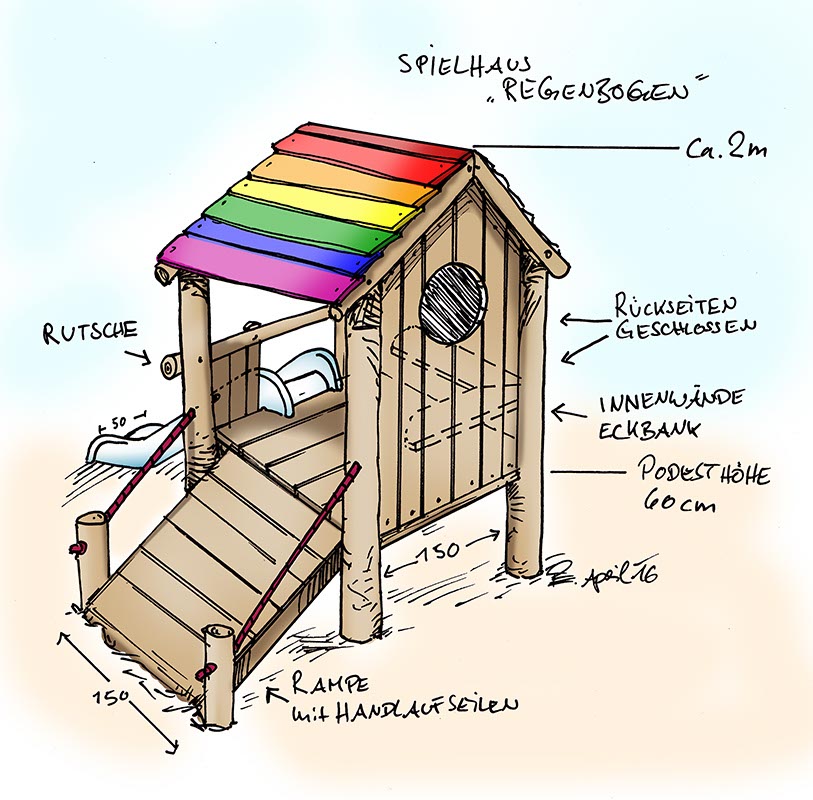 SPIELHAUS
„REGENBOGEN"
Ca. 2m
RUTSCHE
RÜCKSEITEN
GESCHLOSSEN
50
INNENWÄNDE
ECKBANK
PODESTHÖHE
60cm
150
April '16
150
RAMPE
mit HANDLAUFSEILEN